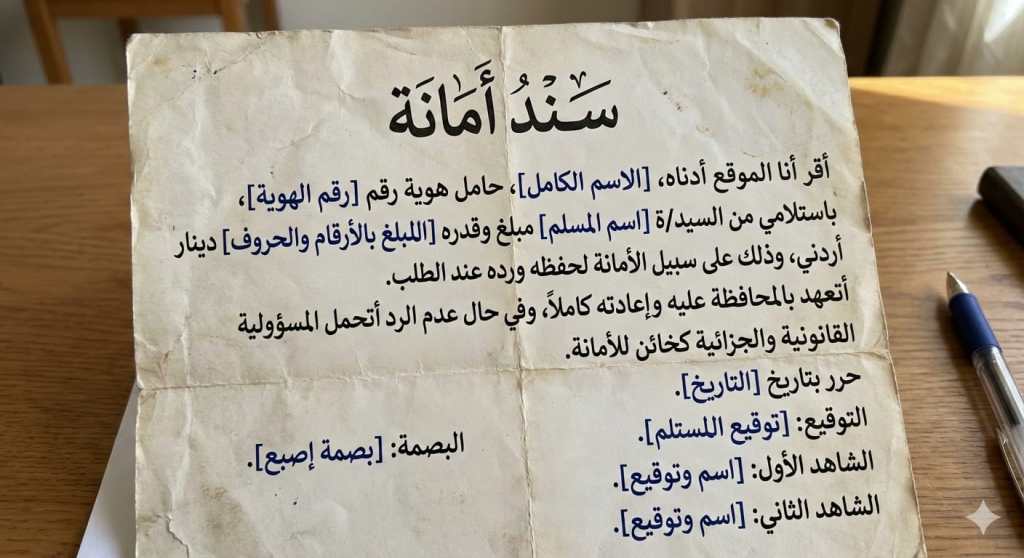 سَنْدُ أَمَانَة
أقر أنا الموقع أدناه، [الاسم الكامل]، حامل هوية رقم [رقم الهوية]،
باستلامي من السيد/ة [اسم المسلم] مبلغ وقدره [اللبلغ بالأرقام والحروف] دينار
أردني، وذلك على سبيل الأمانة لحفظه ورده عند الطلب.
أتعهد بالمحافظة عليه وإعادته كاملاً، وفي حال عدم الرد أتحمل المسؤولية
القانونية والجزائية كخائن للأمانة.
حرر بتاريخ [التاريخ].
التوقيع: [توقيع اللستلم].
البصمة: [بصمة إصبع].
الشاهد الأول: [اسم وتوقيع].
الشاهد الثاني: [اسم وتوقيع].